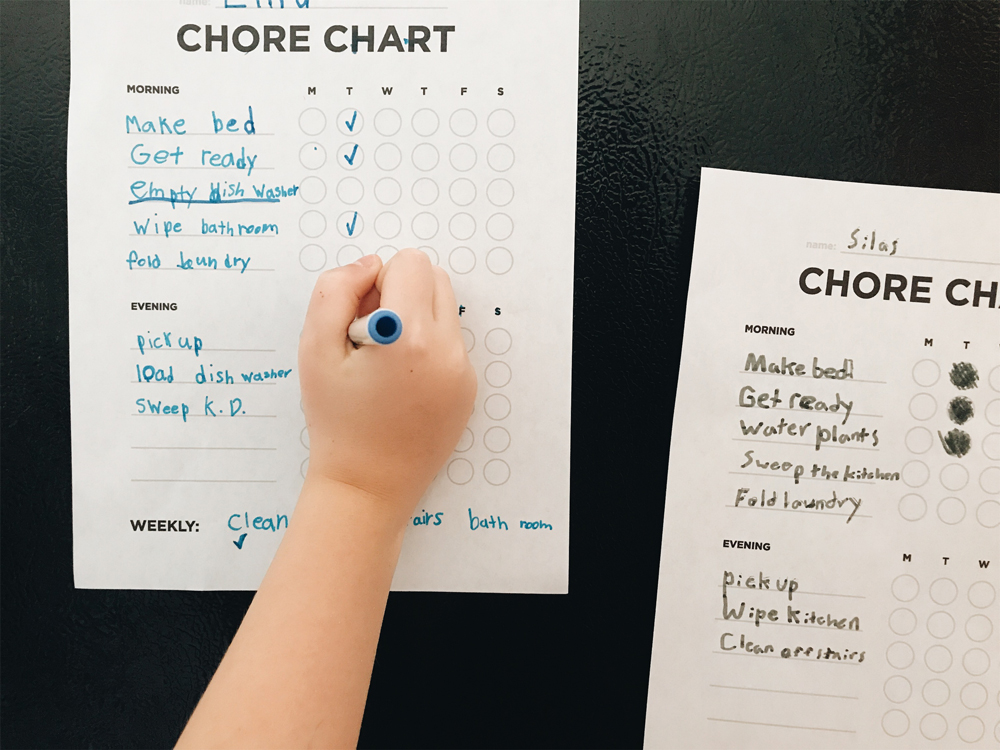 CHORE CHART
MORNING M T W T F S
Make bed
Get ready
empty dish washer
wipe bathroom
fold laundry
EVENING F S
pick up
load dish washer
Sweep K.D.
WEEKLY: Clean airs bath room
name: Silas
CHORE CH
MORNING M T
Make bed
Get ready
water plants
Sweep the kitchen
Fold laundry
EVENING M T W
pick up
Wipe kitchen
Clean off stairs